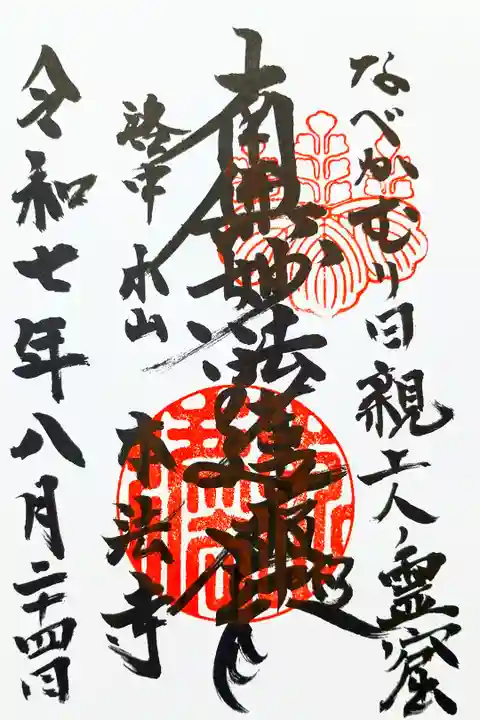 なべかむり日親上人ノ霊窟
南無妙法蓮華経
洛中 本山 本法寺
令和七年八月二十四日